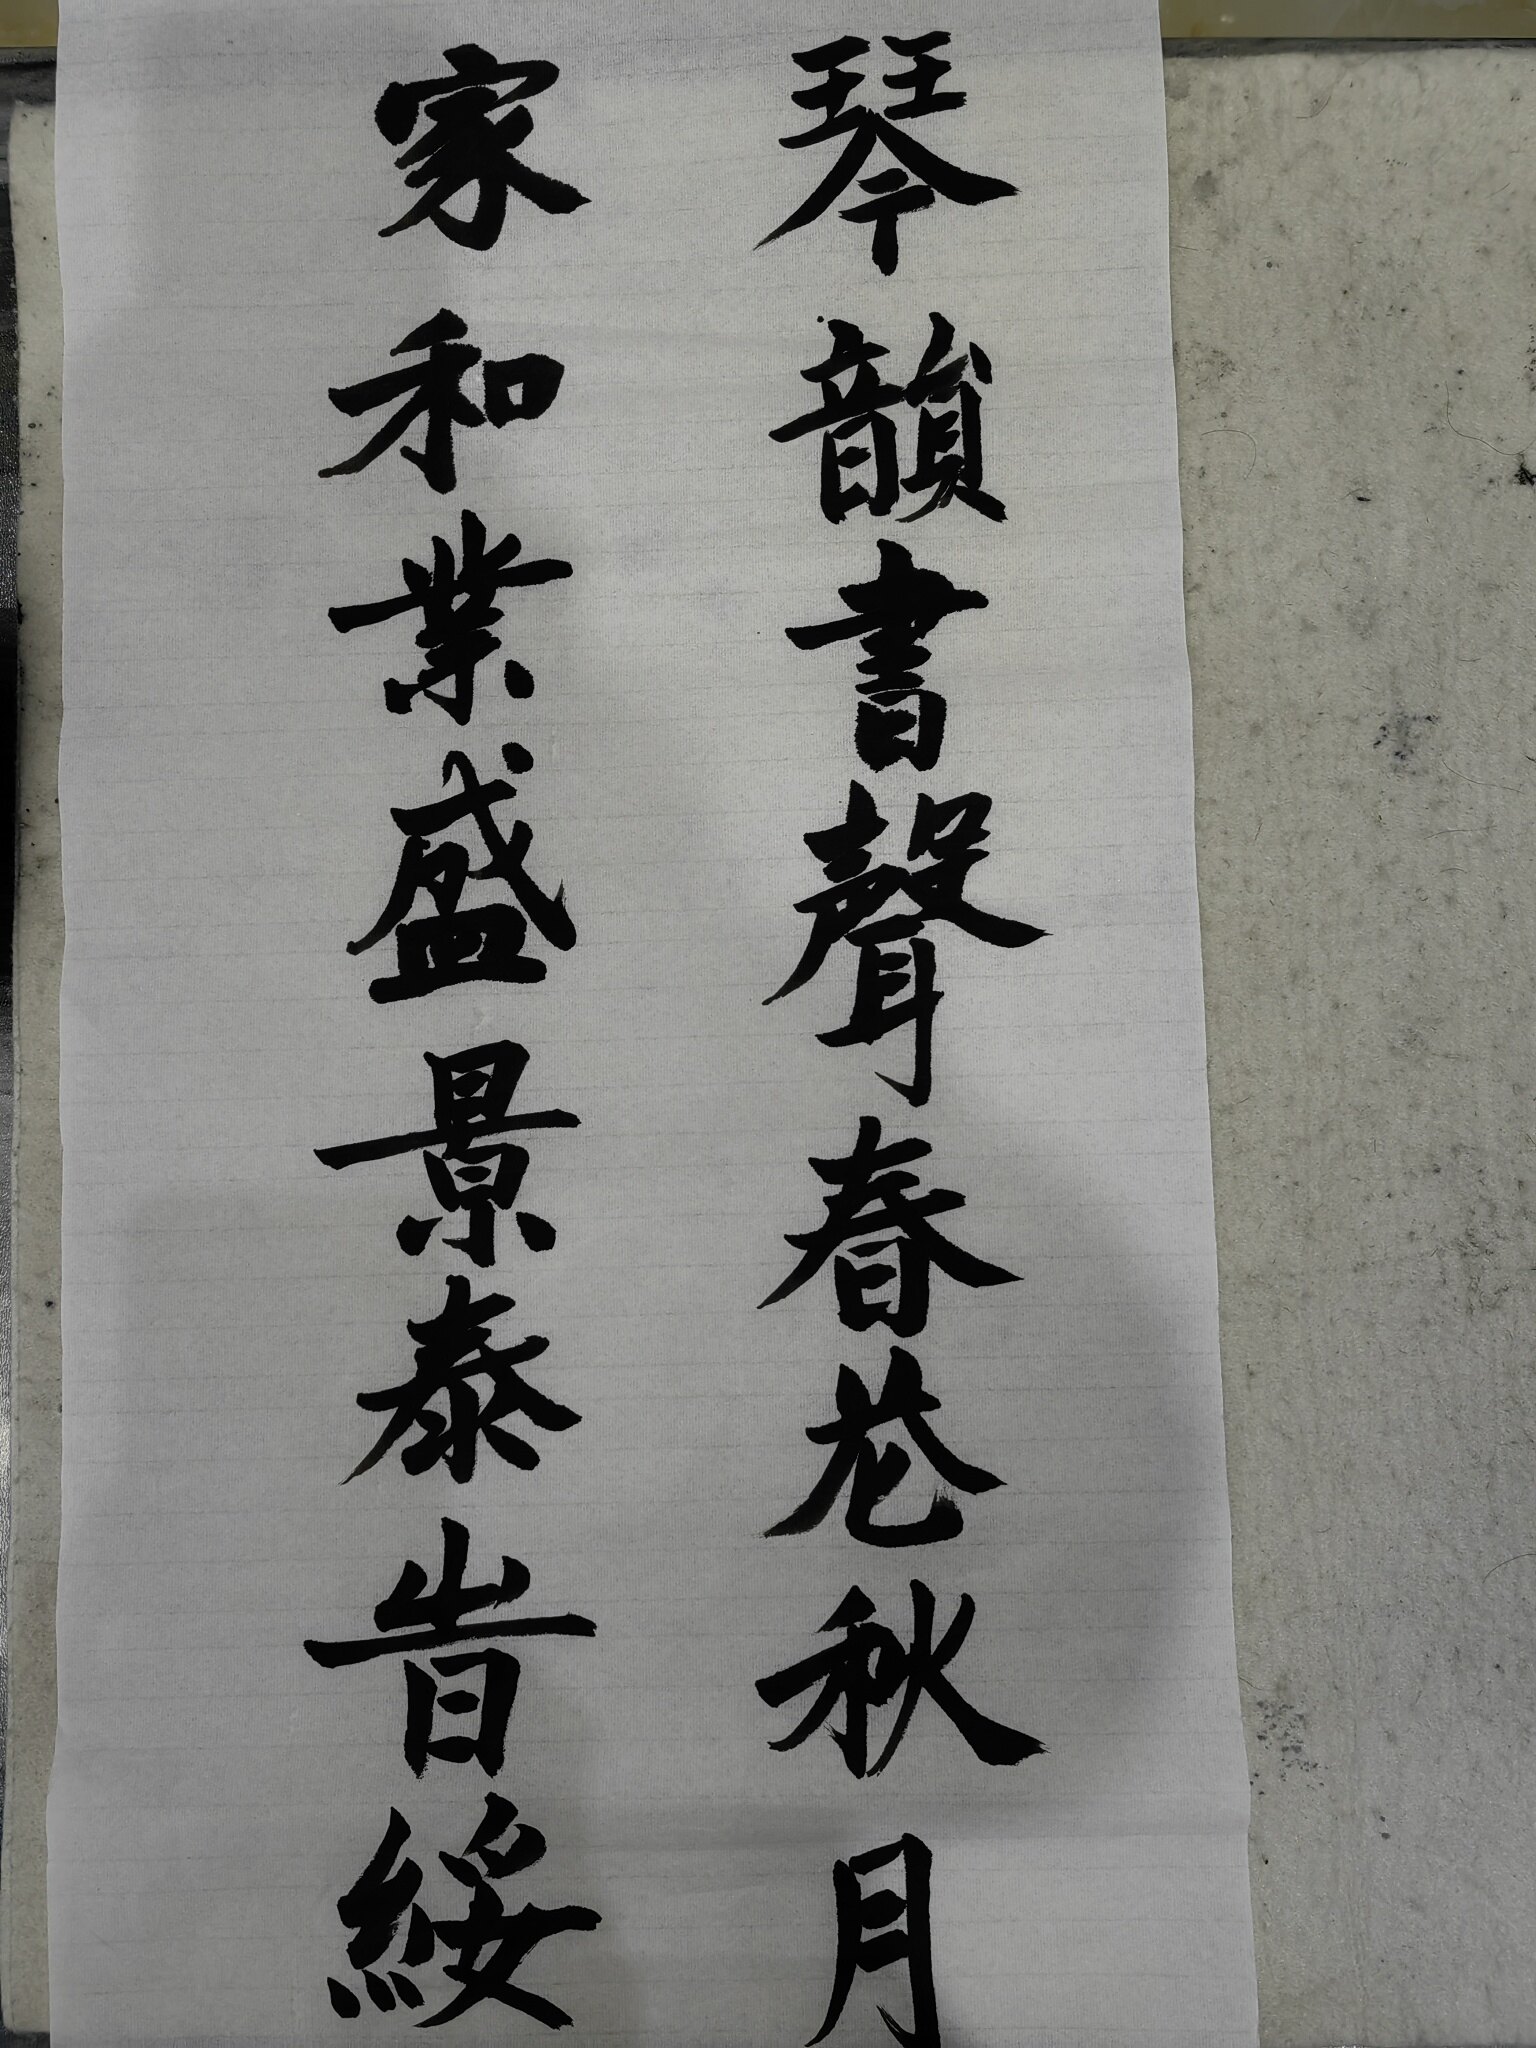 琴韻書聲春花秋月
家和業盛景泰旹綏